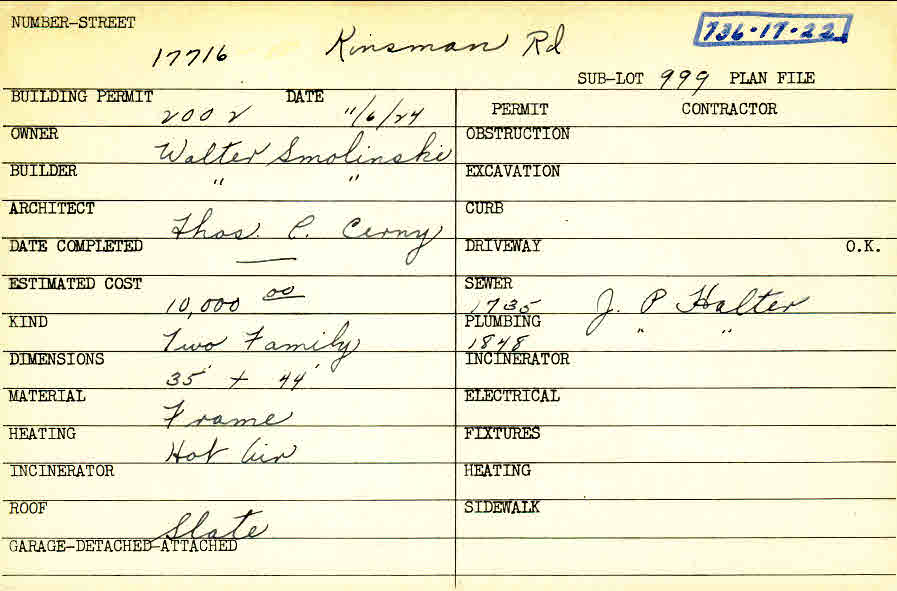 NUMBER-STREET
17716 Kinsman Rd
736-17-22
SUB-LOT 999 PLAN FILE
BUILDING PERMIT DATE
2002 11/6/24
OWNER
Walter Smolinski
BUILDER
" "
ARCHITECT
Thos. C. Cerny
DATE COMPLETED
—
ESTIMATED COST
10,000 00
KIND
Two Family
DIMENSIONS
35' + 44'
MATERIAL
Frame
HEATING
Hot Air
INCINERATOR
ROOF
Slate
GARAGE-DETACHED-ATTACHED
PERMIT CONTRACTOR
OBSTRUCTION
EXCAVATION
CURB
DRIVEWAY O.K.
SEWER
1735 J. P Halter
PLUMBING
1848 " "
INCINERATOR
ELECTRICAL
FIXTURES
HEATING
SIDEWALK